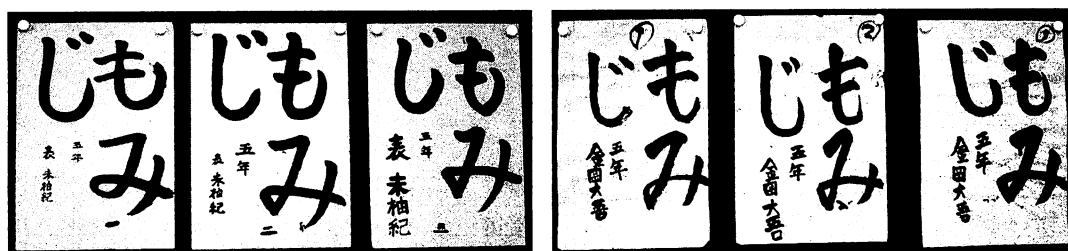 もみ
じ
五年
表 未柚紀
一
もみ
じ
五年
表 未柚紀
二
もみ
じ
五年
表 未柚紀
三
①
もみ
じ
五年
金田大吾
②
もみ
じ
五年
金田大吾
③
もみ
じ
五年
金田大吾